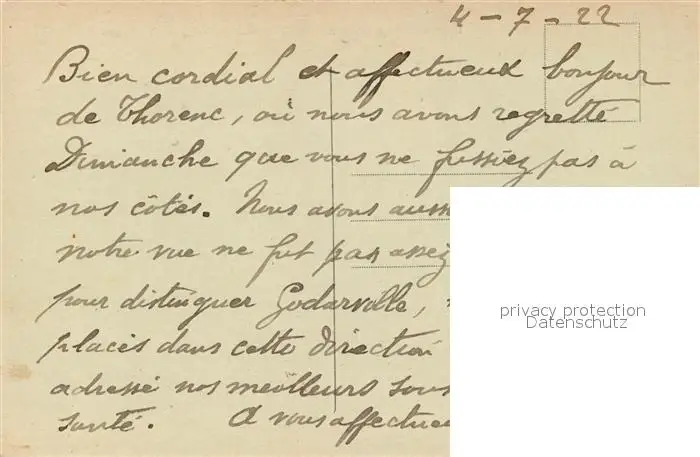 4-7-22
Bien cordial et affectueux bonjour
de Thorenc, où nous avons regretté
Dimanche que vous ne fussiez pas à
nos côtés. Nous avons auss
notre vue ne fut pas assez
pour distinguer Godarville,
placés dans cette direction
adressé nos meilleurs sou
santé. A vous affectue
privacy protection
Datenschutz